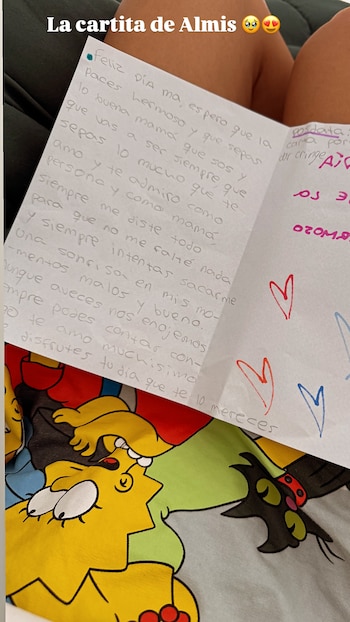 La cartita de Almis 🥹😍
Feliz DIA ma, espero que la
paces hermoso y que sepas
lo buena mamá que sos y
que vas a ser siempre, que
sepas lo mucho que te
amo y te admiro como
persona y como mamá
siempre me diste todo
para que no me falte nada
y siempre intentas sacarme
una sonrisa en mis mo-
mentos malos y bueno
unque aveces nos enojemos
mpre podes contar con
te amo muchisimo
disfrutes tu día que te lo mereces
posdata:
carta par